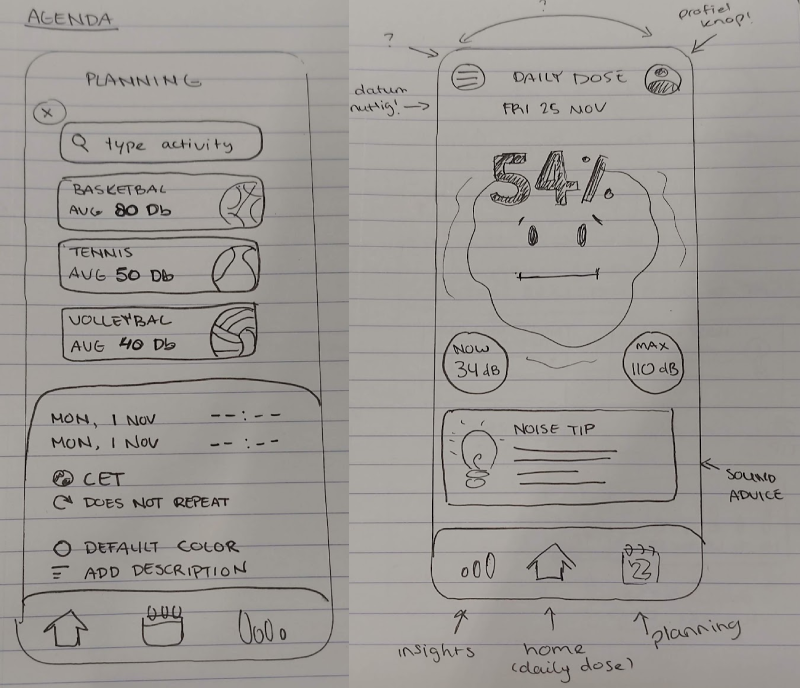 AGENDA
PLANNING
X
type activity
BASKETBAL
AVG 80 Db
TENNIS
AVG 50 Db
VOLLEYBAL
AVG 40 Db
MON, 1 NOV --:--
MON, 1 NOV --:--
CET
DOES NOT REPEAT
DEFAULT COLOR
ADD DESCRIPTION
?
?
profiel
knop!
DAILY DOSE
datum
nuttig!
FRI 25 NOV
54%
NOW
34 dB
MAX
110 dB
NOISE TIP
SOUND
ADVICE
2
insights
home
(daily dose)
planning